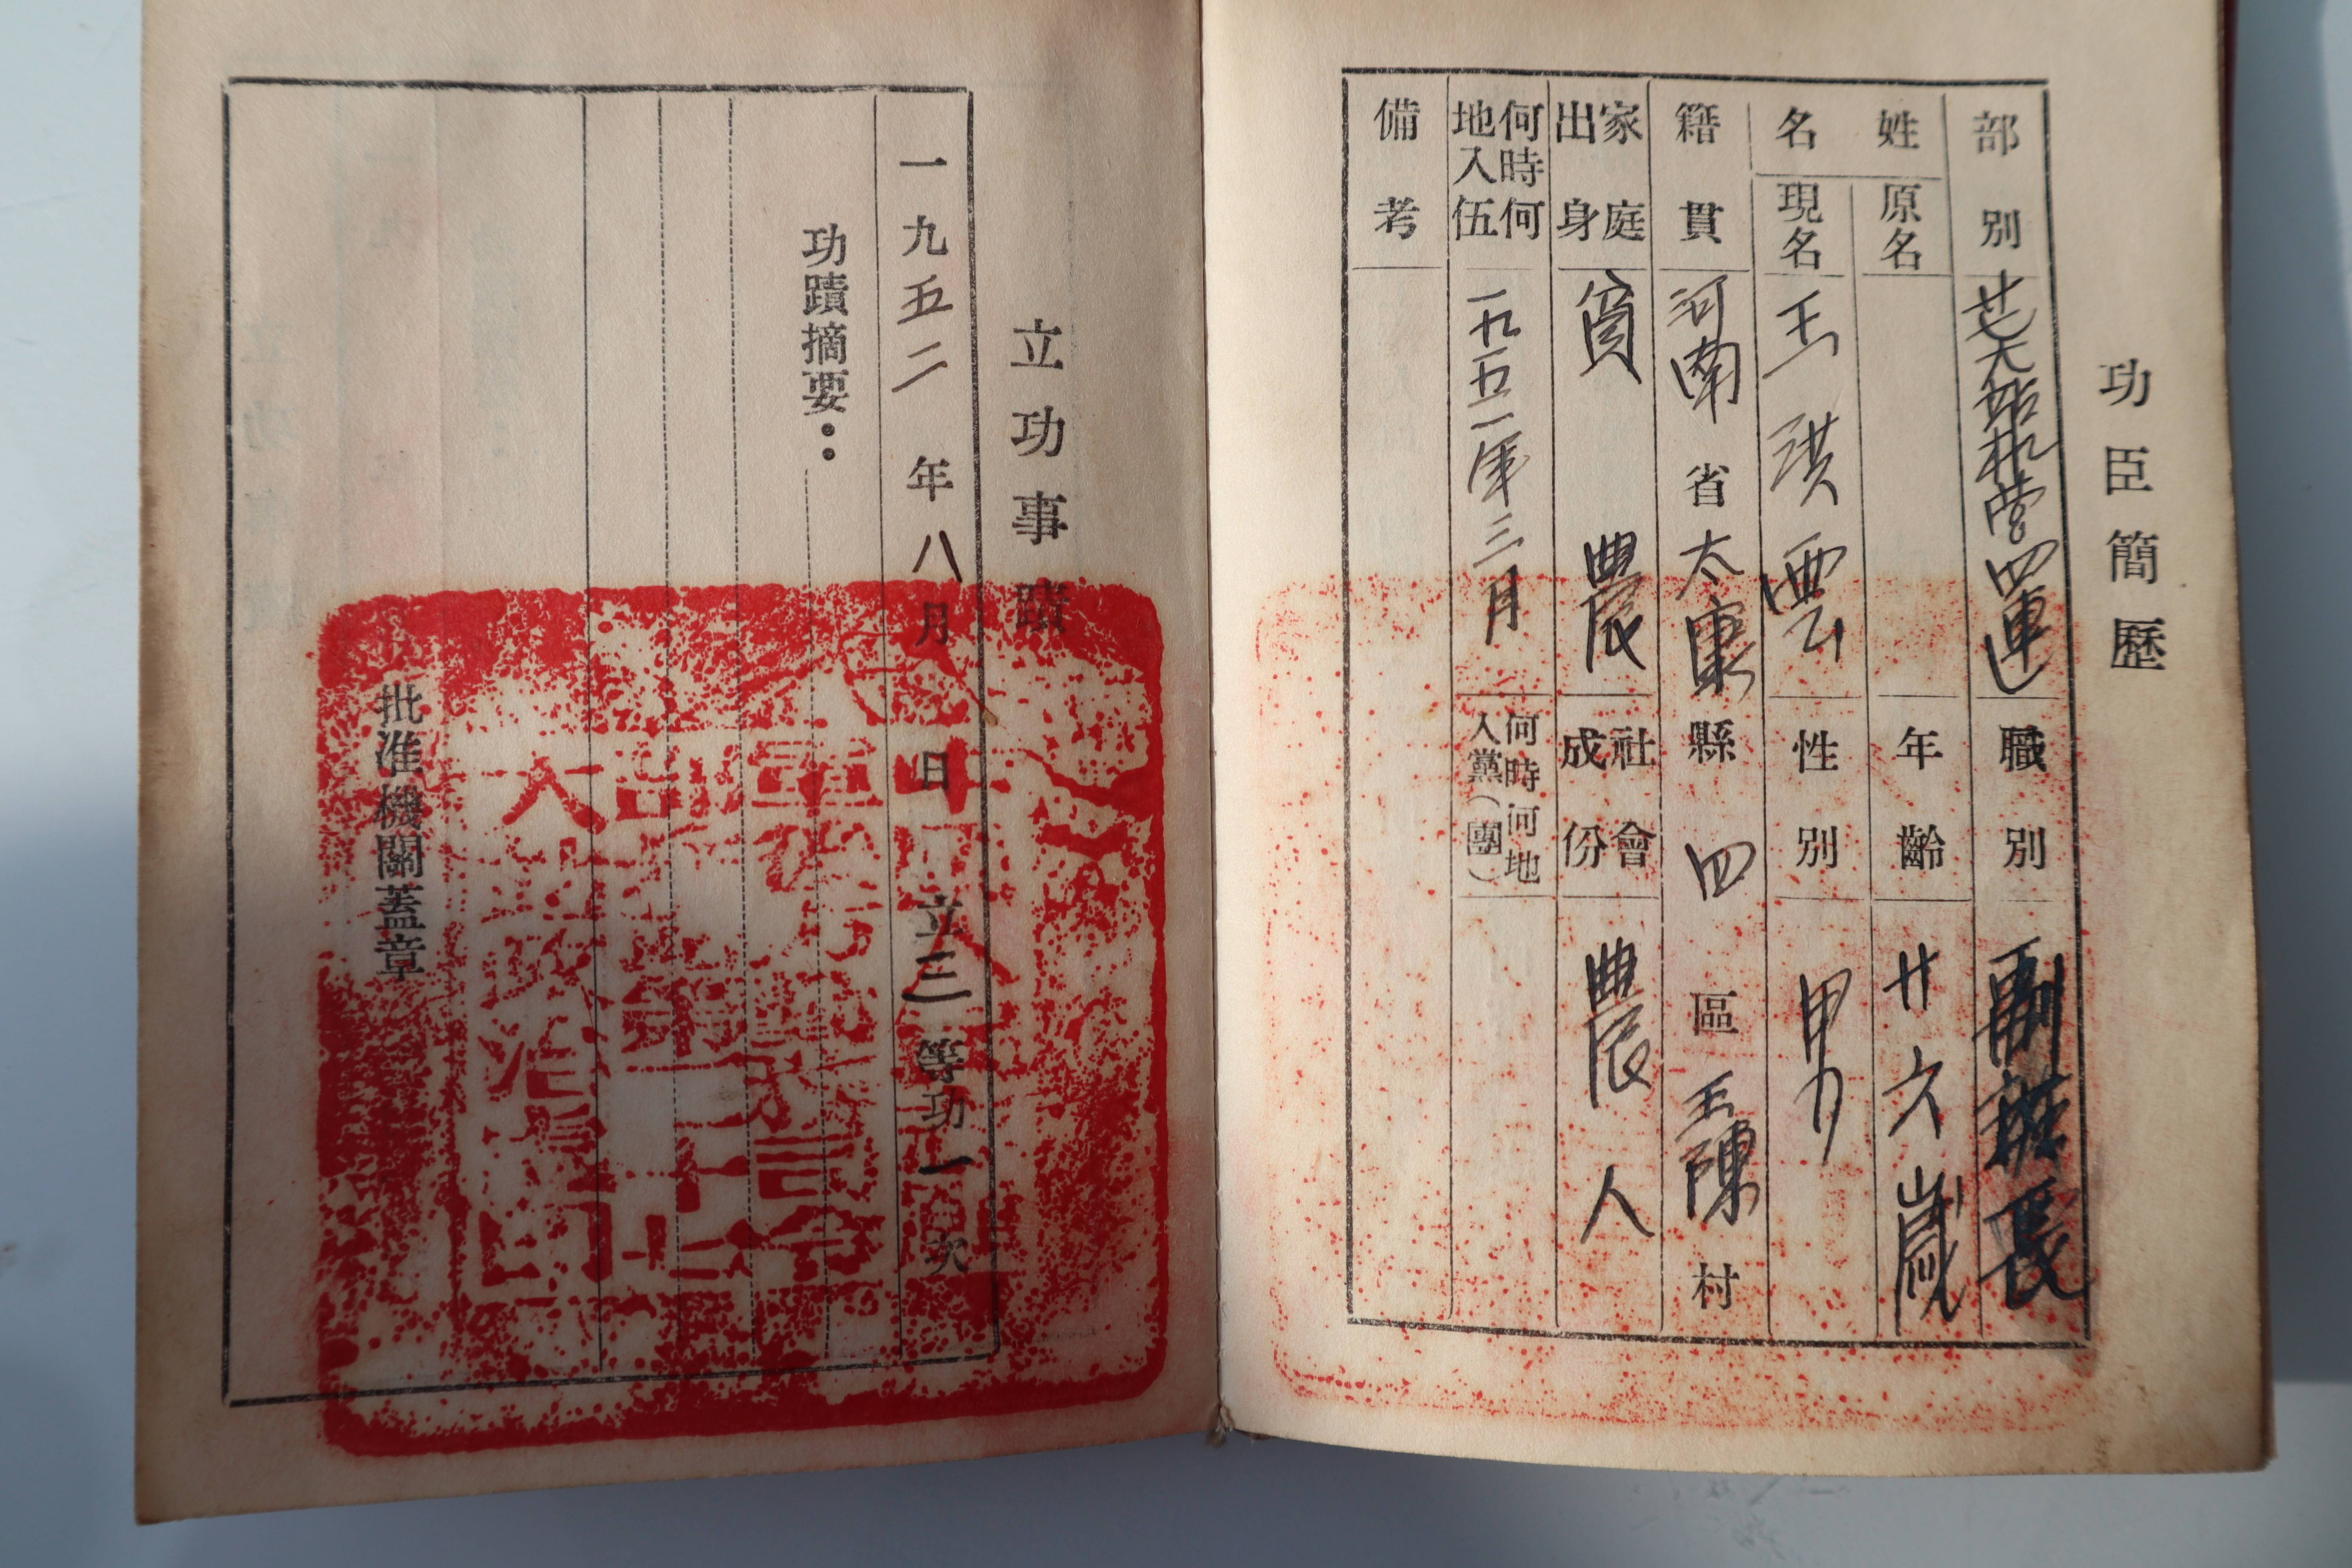 功臣簡歷
部別
四連
職別
副班長
姓名
原名
年齡
廿六歲
現名
王琪雲
性別
男
籍貫
河南省太康縣四區王陳村
家庭出身
貧農
社會成份
農人
何時何地入伍
一九五一年三月
何時何地入黨(團)
備考
立功事蹟
一九五二年八月 日立三等功一次
功蹟摘要:
批准機關蓋章